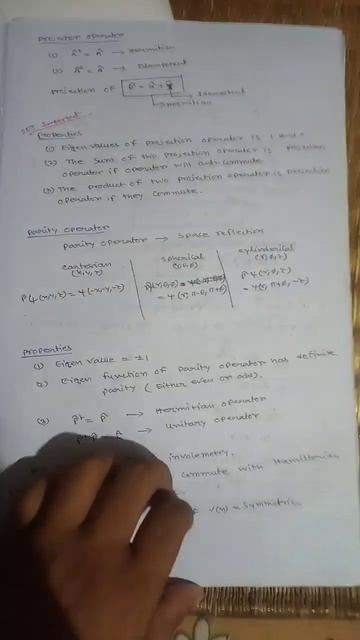 Projection operator
(1) n̂† = n̂ → Hermitian
(2) n̂² = n̂ → Idempotent
Projection of P̂ = Idempotent
Hermitian
Properties
(1) Eigen values of projection operator is 1 and
(2) The sum of two projection operator is projection
operator if operator will anti commute.
(3) The product of two projection operator is projection
operator if they commute.
Parity operator
Parity operator → space reflection
cartesian (x, y, z)
P̂ψ(x,y,z) = ψ(-x,-y,-z)
spherical (r,θ,ϕ)
P̂ψ(r,θ,ϕ) = ψ(r, π-θ, π+ϕ)
cylinderical (r,ϕ,z)
P̂ψ(r,ϕ,z) = ψ(r, π+ϕ, -z)
Properties
(1) Eigen value = ±1
(2) Eigen function of parity operator has definite
parity (Either even or odd).
(3) P̂† = P̂ → Hermitian operator
→ unitary operator
involemetry.
commute with Hamiltonian
V(x) = symmetric